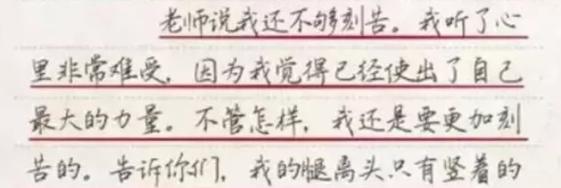 老师说我还不够刻苦。我听了心
里非常难受，因为我觉得已经使出了自己
最大的力量。不管怎样，我还是要更加刻
苦的。告诉你们，我的腿离头只有竖着的